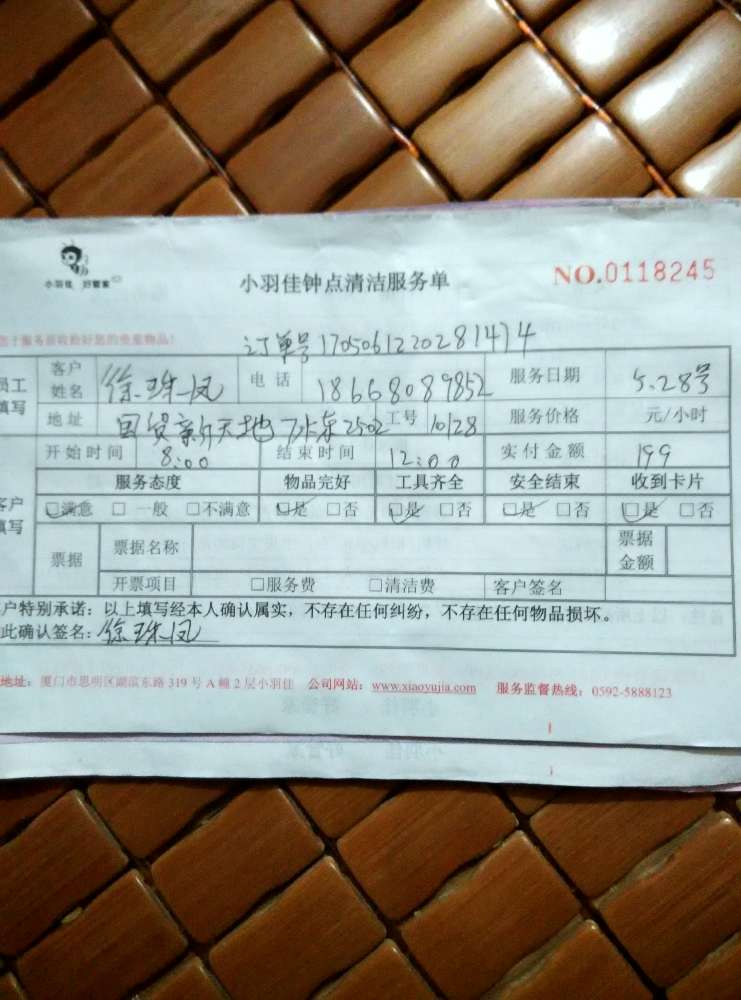 小羽佳 好管家
小羽佳钟点清洁服务单
NO.0118245
订单号 1705061220281474
员工填写 客户姓名 徐珠凤 电话 18668089852 服务日期 5.28号
地址 国贸新天地 东2502 工号 10128 服务价格 元/小时
开始时间 8:00 结束时间 12:00 实付金额 199
服务态度 物品完好 工具齐全 安全结束 收到卡片
客户填写 □满意 □一般 □不满意 □是 □否 □是 □否 □是 □否 □是 □否
票据 票据名称 票据金额
开票项目 □服务费 □清洁费 客户签名
户特别承诺：以上填写经本人确认属实，不存在任何纠纷，不存在任何物品损坏。
此确认签名：徐珠凤
地址：厦门市思明区湖滨东路 319 号 A 幢 2 层小羽佳 公司网站：www.xiaoyujia.com 服务监督热线：0592-5888123